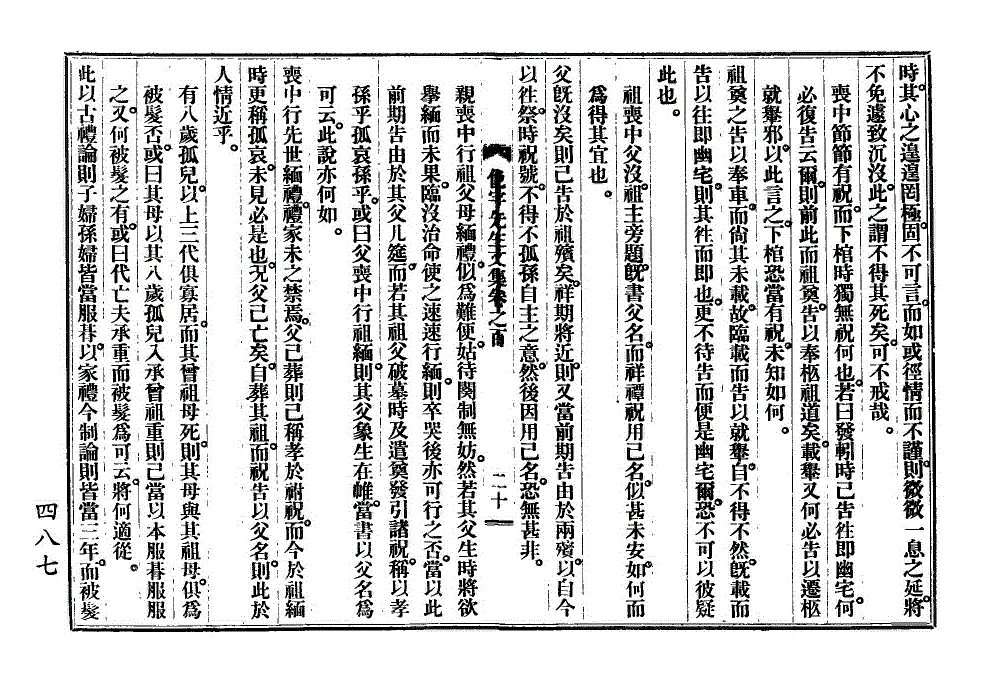 時。其心之遑遑罔極。固不可言。而如或徑情而不謹。則微微一息之延。將
不免遽致沉沒。此之謂不得其死矣。可不戒哉。
喪中節節有祝。而下棺時獨無祝何也。若曰發靷時已告往卽幽宅。何
必復告云爾。則前此而祖奠。告以奉柩祖道矣。載轝又何必告以遷柩
就轝邪。以此言之。下棺恐當有祝。未知如何。
祖奠之告以奉車。而尙其未載。故臨載而告以就轝。自不得不然。旣載而
告以往卽幽宅。則其往而卽也。更不待告而便是幽宅爾。恐不可以彼疑
此也。
祖喪中父沒。祖主旁題。旣書父名。而祥禫祝用己名。似甚未安。如何而
爲得其宜也。
父旣沒矣則已告於祖殯矣。祥期將近。則又當前期告由於兩殯。以自今
以往。祭時祝號。不得不孤孫自主之意。然後因用己名。恐無甚非。
親喪中行祖父母緬禮。似爲難便。姑待闋制無妨。然若其父生時將欲
擧緬而未果。臨沒治命使之速速行緬。則卒哭後亦可行之否。當以此
前期告由於其父几筵。而若其祖父破墓時及遣奠發引諸祝。稱以孝
孫乎孤哀孫乎。或曰父喪中行祖緬。則其父象生在帷。當書以父名爲
可云。此說亦何如。
喪中行先世緬禮。禮家未之禁焉。父已葬則已稱孝於祔祝。而今於祖緬
時更稱孤哀。未見必是也。況父已亡矣。自葬其祖。而祝告以父名。則此於
人情近乎。
有八歲孤兒。以上三代俱寡居。而其曾祖母死。則其母與其祖母。俱爲
被髮否。或曰其母以其八歲孤兒入承曾祖重。則已當以本服朞服服
之。又何被髮之有。或曰代亡夫承重而被髮爲可云。將何適從。
此以古禮論則子婦孫婦皆當服朞。以家禮今制論則皆當三年。而被髮
俛宇先生文集卷之百
二十
四八七